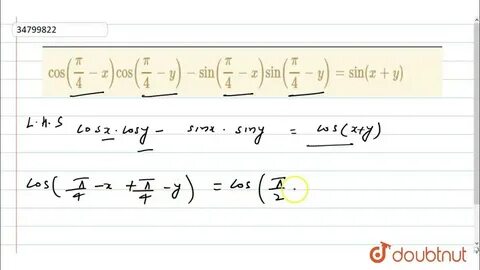 34799822
cos(π/4 − x)cos(π/4 − y) − sin(π/4 − x)sin(π/4 − y) = sin(x + y)
L.H.S cosx · cosy − sinx · siny = cos(x+y)
cos(π/4 − x + π/4 − y) = cos(π/2 -
doubtnut